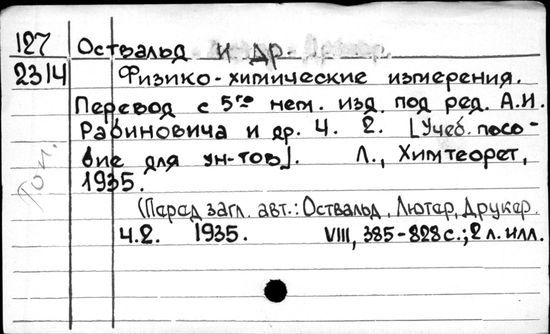 127 Оствальд и др.
2314 Физико-химические измерения.
Перевод с 5го нем. изд. под ред. А.И.
Рабиновича и др. Ч. 2. [Учеб. посо-
бие для ун-тов]. Л., Химтеорет,
1935.
(Перед загл. авт.: Оствальд, Лютер, Друкер.
Ч.2. 1935. VIII, 385-828 с.; 2 л. илл.